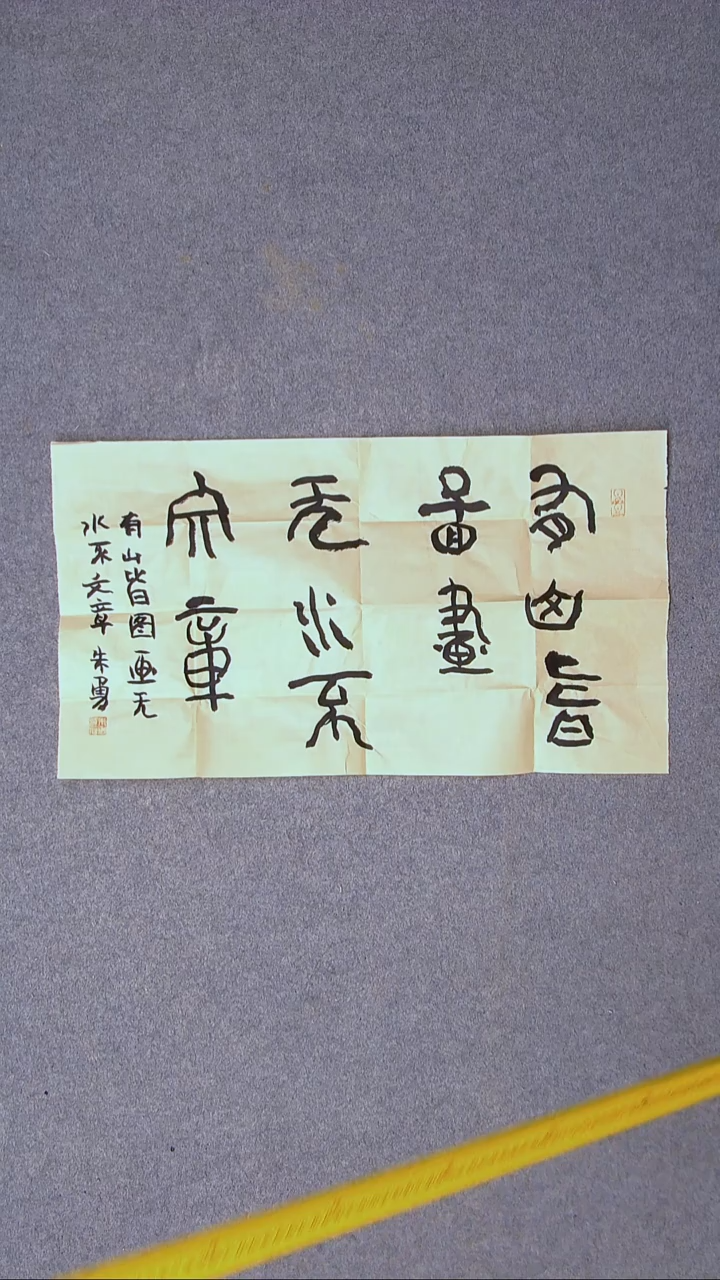 有山皆
圖畫
无水不
文章
有山皆图画无
水不文章 朱勇